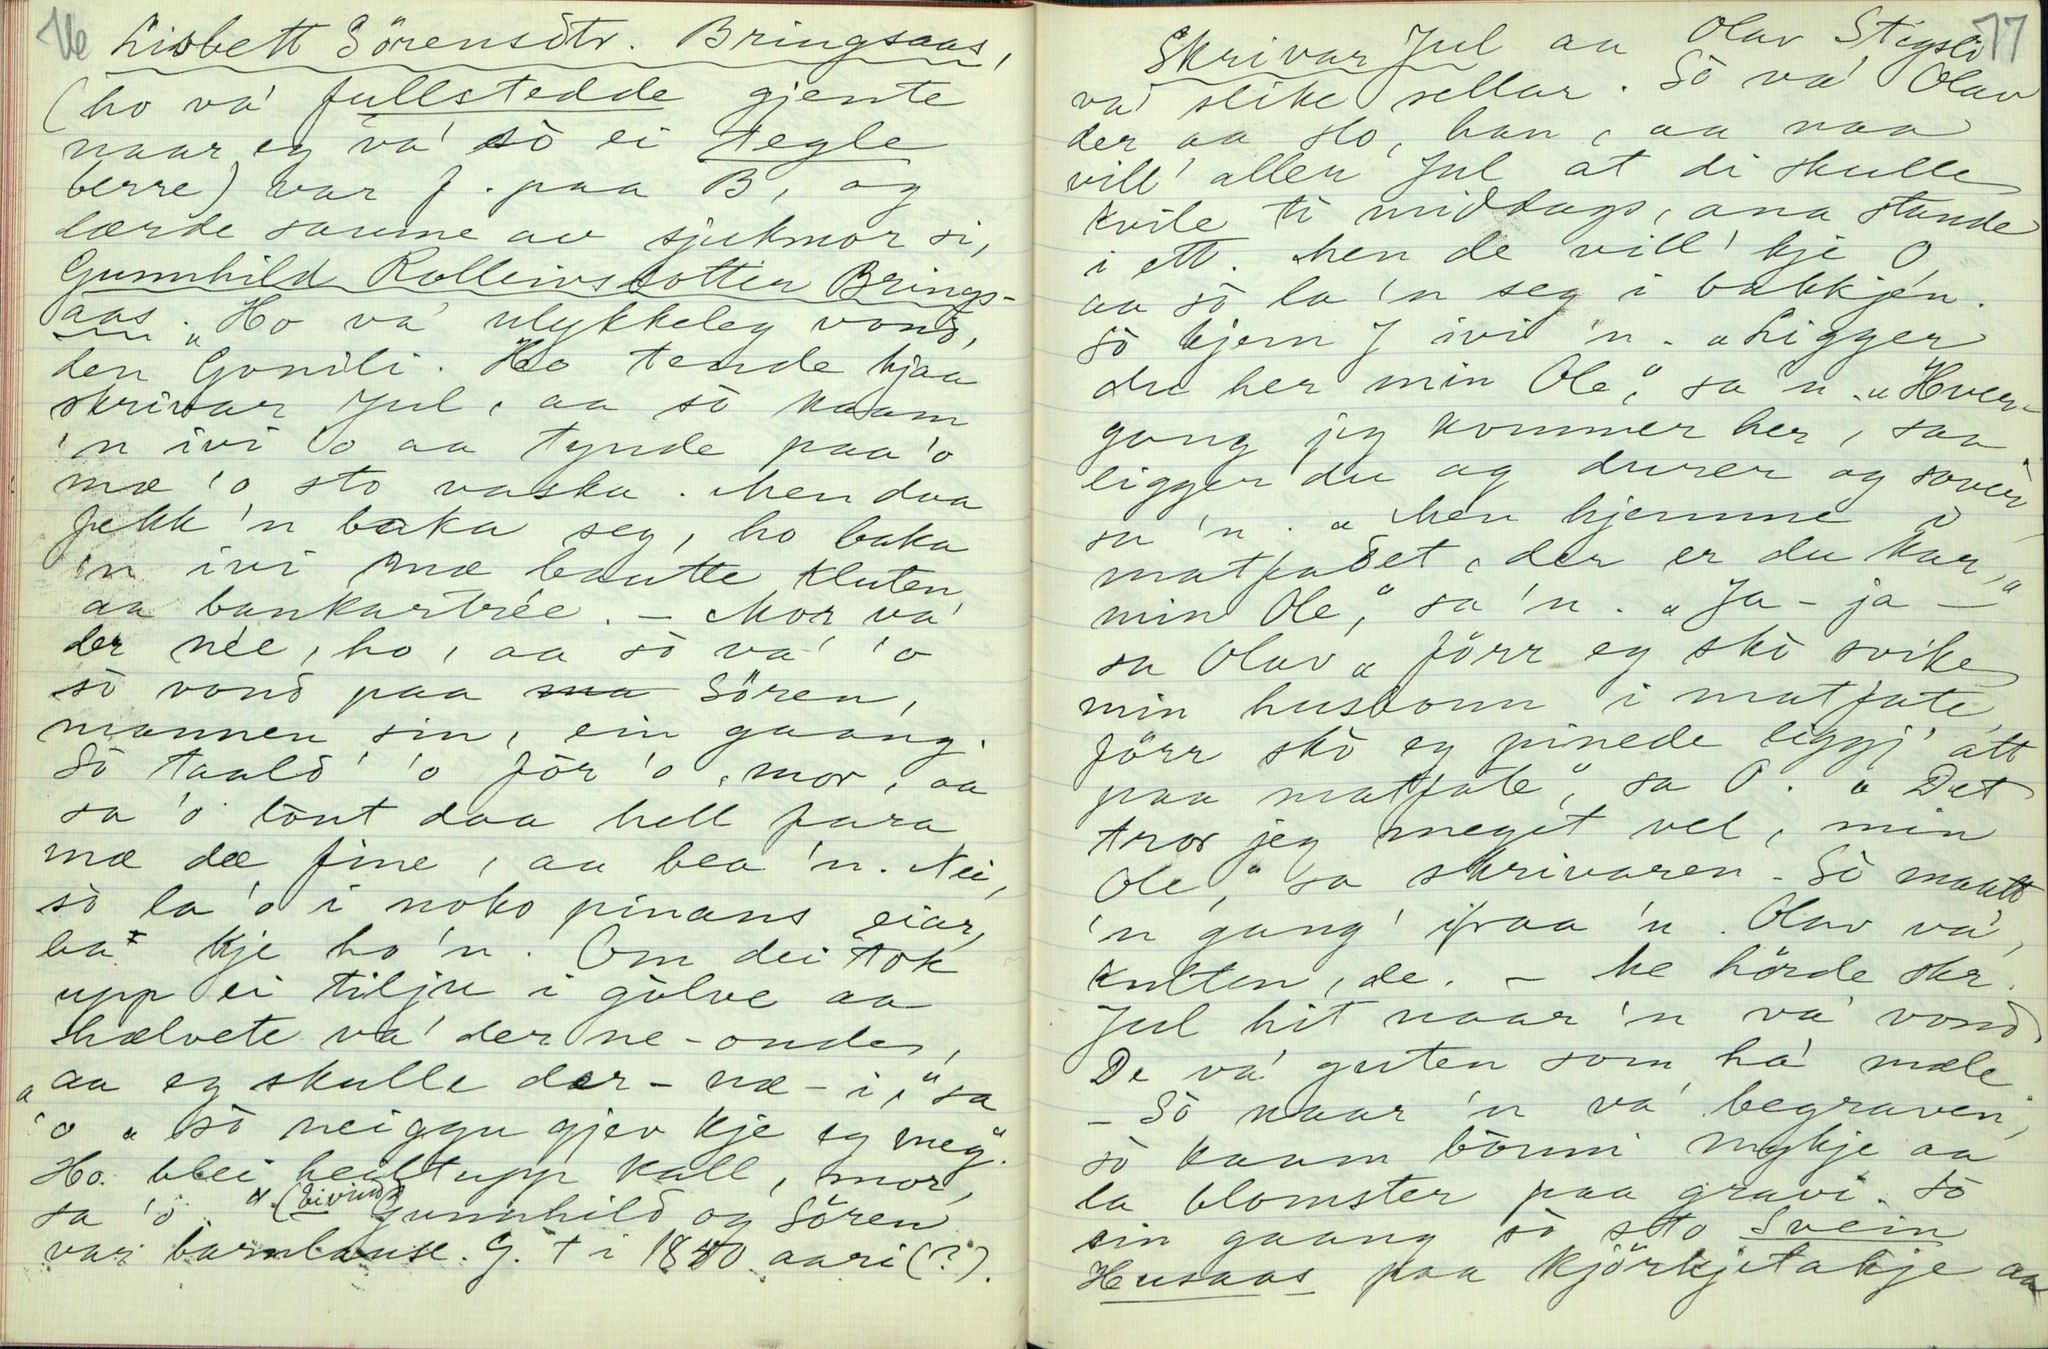 16
Lisbett Sörensdtr. Bringsaas,
(ho va' fullstedde gjente
naar eg va' sò ei tegle
berre) var f. paa B, og
lærde samme av sjukmor si,
Gunnhild Rolleivsdotter Brings-
aas. "Ho va' ulykkeleg vond,
den Gonili. Ho tende hjaa
skrivar Jul, aa sò kaam
'n ivi 'o aa tynde paa 'o
mæ 'o sto vaska. Men daa
fekk 'n baka seg, ho baka
'n ivi mæ baatte kluten
aa bankartrée. – Mor va'
der née, ho, aa sò va' 'o
sò vond paa Sören,
mannen sin, ein gaang.
Sò taald' 'o för 'o, mor, aa
sa 'o lönt daa hell fara
mæ dæ fine, aa bea 'n. Nei,
sò la 'o i noko pinans eiar,
ba kje ho 'n. Om dei tok
upp ei tilju i gölve aa
hælvete va' der ne-onde,
"aa eg skulle der-næ-i," sa
'o "sò neiggu gjev kje eg meg".
Ho blei heiltupp kall, mor,
sa 'o." (Eivind)
Gunnhild og Sören
var barnlause. G. † i 1840 aari (?).
17
Skrivar Jul aa Olav Stigsli
va' slike sellar. Sò va' Olav
der aa slo, han, aa naa
vill' allen Jul at di skulle
kvile ti middags, ana stande
i ett. Men de vill' kje O,
aa sò la 'n seg i bakkjen.
Sò kjem J ivi 'n. "Ligger
du her min Ole," sa 'n. "Hver
gang jeg kommer her, saa
ligger du og durer og sover,
sa 'n. "Men hjemme i
matfadet, der er du kar,
min Ole," sa 'n. "Ja – ja –"
sa Olav "förr eg skò svike
min husbonn i matfate,
förr skò eg pinede liggj' att
paa matfate," sa O. "Det
tror jeg meget vel, min
Ole," sa skrivaren. Sò maatt
'n gang' ifraa 'n. Olav va'
knllen, de. – Me hörde skr.
Jul hit naar 'n va' vond.
De va' guten som ha' mæle
– Sò naar 'n va' begraven,
sò kaam bönni mykje aa
la blomster paa gravi. Sò
ein gaang sò sto Svein
Husaas paa kjörkjetakje aa